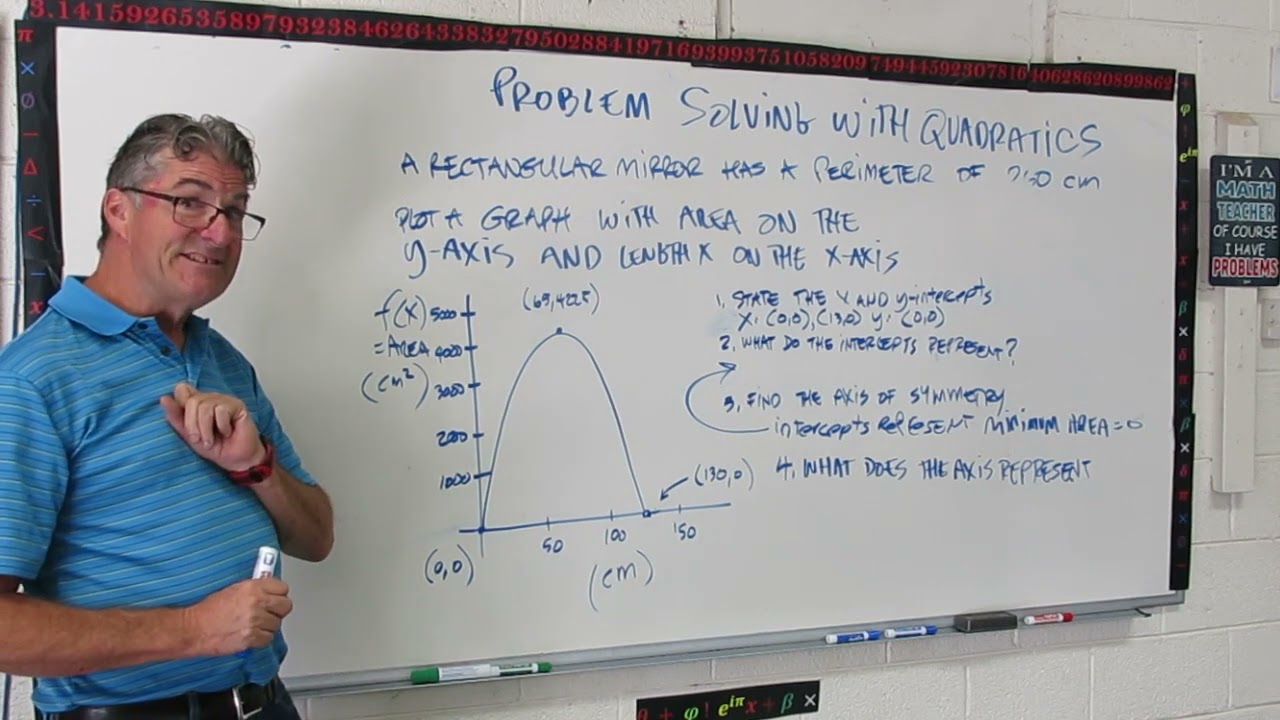 3.14159265358979323846264338327950288419716939937510582097494459230781640628620899862
PROBLEM SOLVING WITH QUADRATICS
A RECTANGULAR MIRROR HAS A PERIMETER OF cm
PLOT A GRAPH WITH AREA ON THE
y-AXIS AND LENGTH X ON THE X-AXIS
f(x)
= AREA
(cm²)
5000
4000
3000
2000
1000
(65,4225)
(0,0)
50
100
150
(130,0)
(cm)
1. STATE THE X AND y-intercepts
X: (0,0), (130,0) y: (0,0)
2. WHAT DO THE INTERCEPTS REPRESENT?
3. FIND THE AXIS OF SYMMETRY
intercepts REPRESENT MINIMUM AREA = 0
4. WHAT DOES THE AXIS REPRESENT
I'M A
MATH
TEACHER
OF COURSE
I HAVE
PROBLEMS
π
×
Ø
−
Δ
÷
<
−
x
φ
!
e^iπ
φ ! e^iπ x + β ×